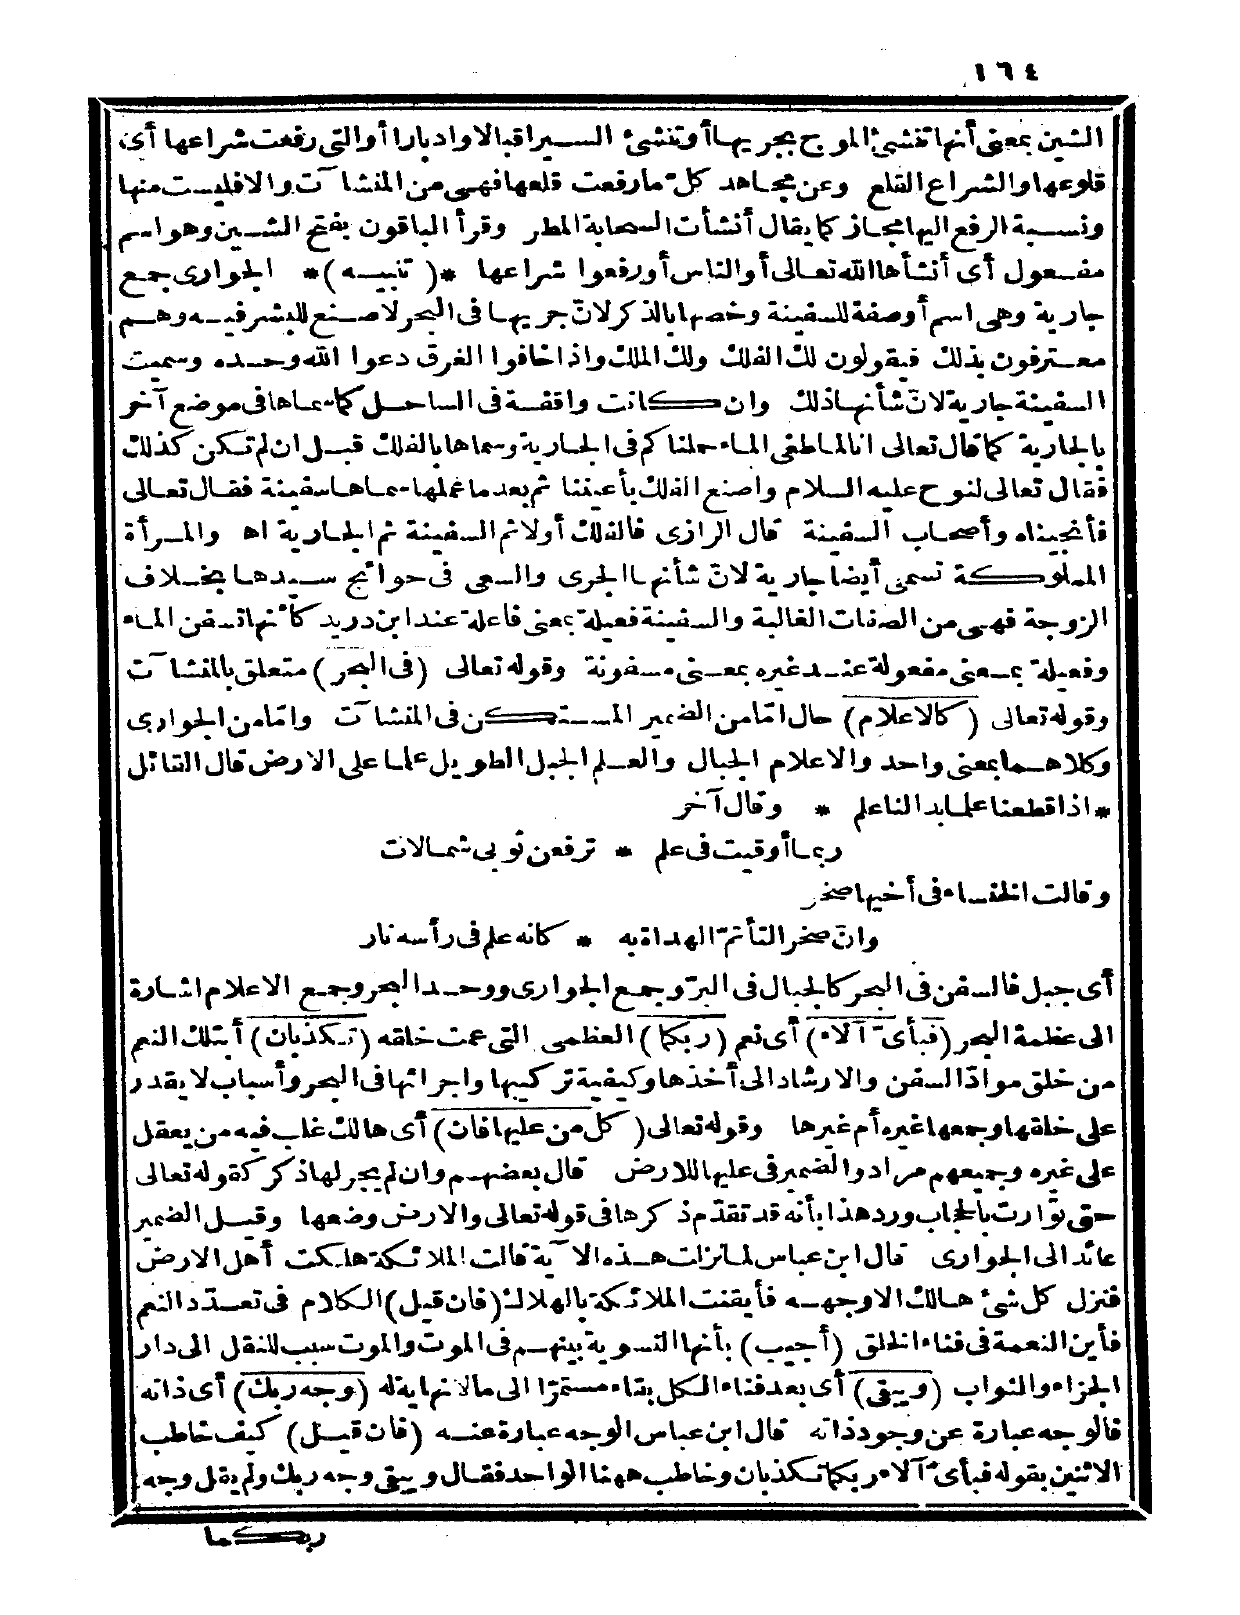 ١٦٤
الشين بمعنى أنها تنشئ الموج بجريها أو تنشئ السير اقبالا وادبارا أو التى رفعت شراعها أى
قلوعها والشراع القلع وعن مجاهد كل ما رفعت قلعها فهى من المنشآت والا فليست منها
ونسبة الرفع اليها مجاز كما يقال أنشأت السحابة المطر وقرأ الباقون بفتح الشين وهو اسم
مفعول أى أنشأها الله تعالى أو الناس أو رفعوا شراعها *(تنبيه)* الجوارى جمع
جارية وهى اسم أو صفة للسفينة وخصها بالذكر لانّ جريها فى البحر لا صنع للبشر فيه وهم
معترفون بذلك فيقولون لك الفلك ولك الملك واذا خافوا الغرق دعوا الله وحده وسميت
السفينة جارية لانّ شأنها ذلك وان كانت واقفة فى الساحل كما سماها فى موضع آخر
بالجارية كما قال تعالى انا لما طغى الماء حملناكم فى الجارية وسماها بالفلك قبل ان لم تكن كذلك
فقال تعالى لنوح عليه السلام واصنع الفلك بأعيننا ثم بعد ما عملها سماها سفينة فقال تعالى
فأنجيناه وأصحاب السفينة قال الرازى فالفلك أولا ثم السفينة ثم الجارية اه والمرأة
المملوكة تسمى أيضا جارية لانّ شأنها الجرى والسعى فى حوائج سيدها بخلاف
الزوجة فهى من الصفات الغالبة والسفينة فعيلة بمعنى فاعلة عند ابن دريد كأنها تسفن الماء
وفعيلة بمعنى مفعولة عند غيره بمعنى مسفونة وقوله تعالى (فى البحر) متعلق بالمنشآت
وقوله تعالى (كالاعلام) حال امّا من الضمير المستكن فى المنشآت وامّا من الجوارى
وكلاهما بمعنى واحد والاعلام الجبال والعلم الجبل الطويل علما على الارض قال القائل
* اذا قطعنا علما بدا لنا علم * وقال آخر
ربما أوقيت فى علم * ترفعن ثوبى شمالات
وقالت الخنساء فى أخيها صخر
وانّ صخرا لتأتمّ الهداة به * كانه علم فى رأسه نار
أى جبل فالسفن فى البحر كالجبال فى البرّ وجمع الجوارى ووحد البحر وجمع الاعلام اشارة
الى عظمة البحر (فبأىّ آلاء) أى نعم (ربكما) العظمى التى عمت خلقه (تكذبان) أبتلك النعم
من خلق موادّ السفن والارشاد الى أخذها وكيفية تركيبها واجرائها فى البحر وأسباب لا يقدر
على خلقها وجمعها غيره أم غيرها وقوله تعالى (كل من عليها فان) أى هالك غلب فيه من يعقل
على غيره وجميعهم مراد والضمير فى عليها للارض قال بعضهم وان لم يجر لها ذكر كقوله تعالى
حتى توارت بالحجاب ورد هذا بأنه قد تقدّم ذكرها فى قوله تعالى والارض وضعها وقيل الضمير
عائد الى الجوارى قال ابن عباس لما نزلت هذه الآية قالت الملائكة هلكت أهل الارض
فنزل كل شئ هالك الا وجهه فأيقنت الملائكة بالهلاك (فان قيل) الكلام فى تعدّد النعم
فأين النعمة فى فناء الخلق (أجيب) بأنها التسوية بينهم فى الموت والموت سبب للنقل الى دار
الجزاء والثواب (ويبقى) أى بعد فناء الكل بقاء مستمرّا الى ما لا نهاية له (وجه ربك) أى ذاته
فالوجه عبارة عن وجود ذاته قال ابن عباس الوجه عبارة عنه (فان قيل) كيف خاطب
الاثنين بقوله فبأىّ آلاء ربكما تكذبان وخاطب ههنا الواحد فقال ويبقى وجه ربك ولم يقل وجه
ربكما